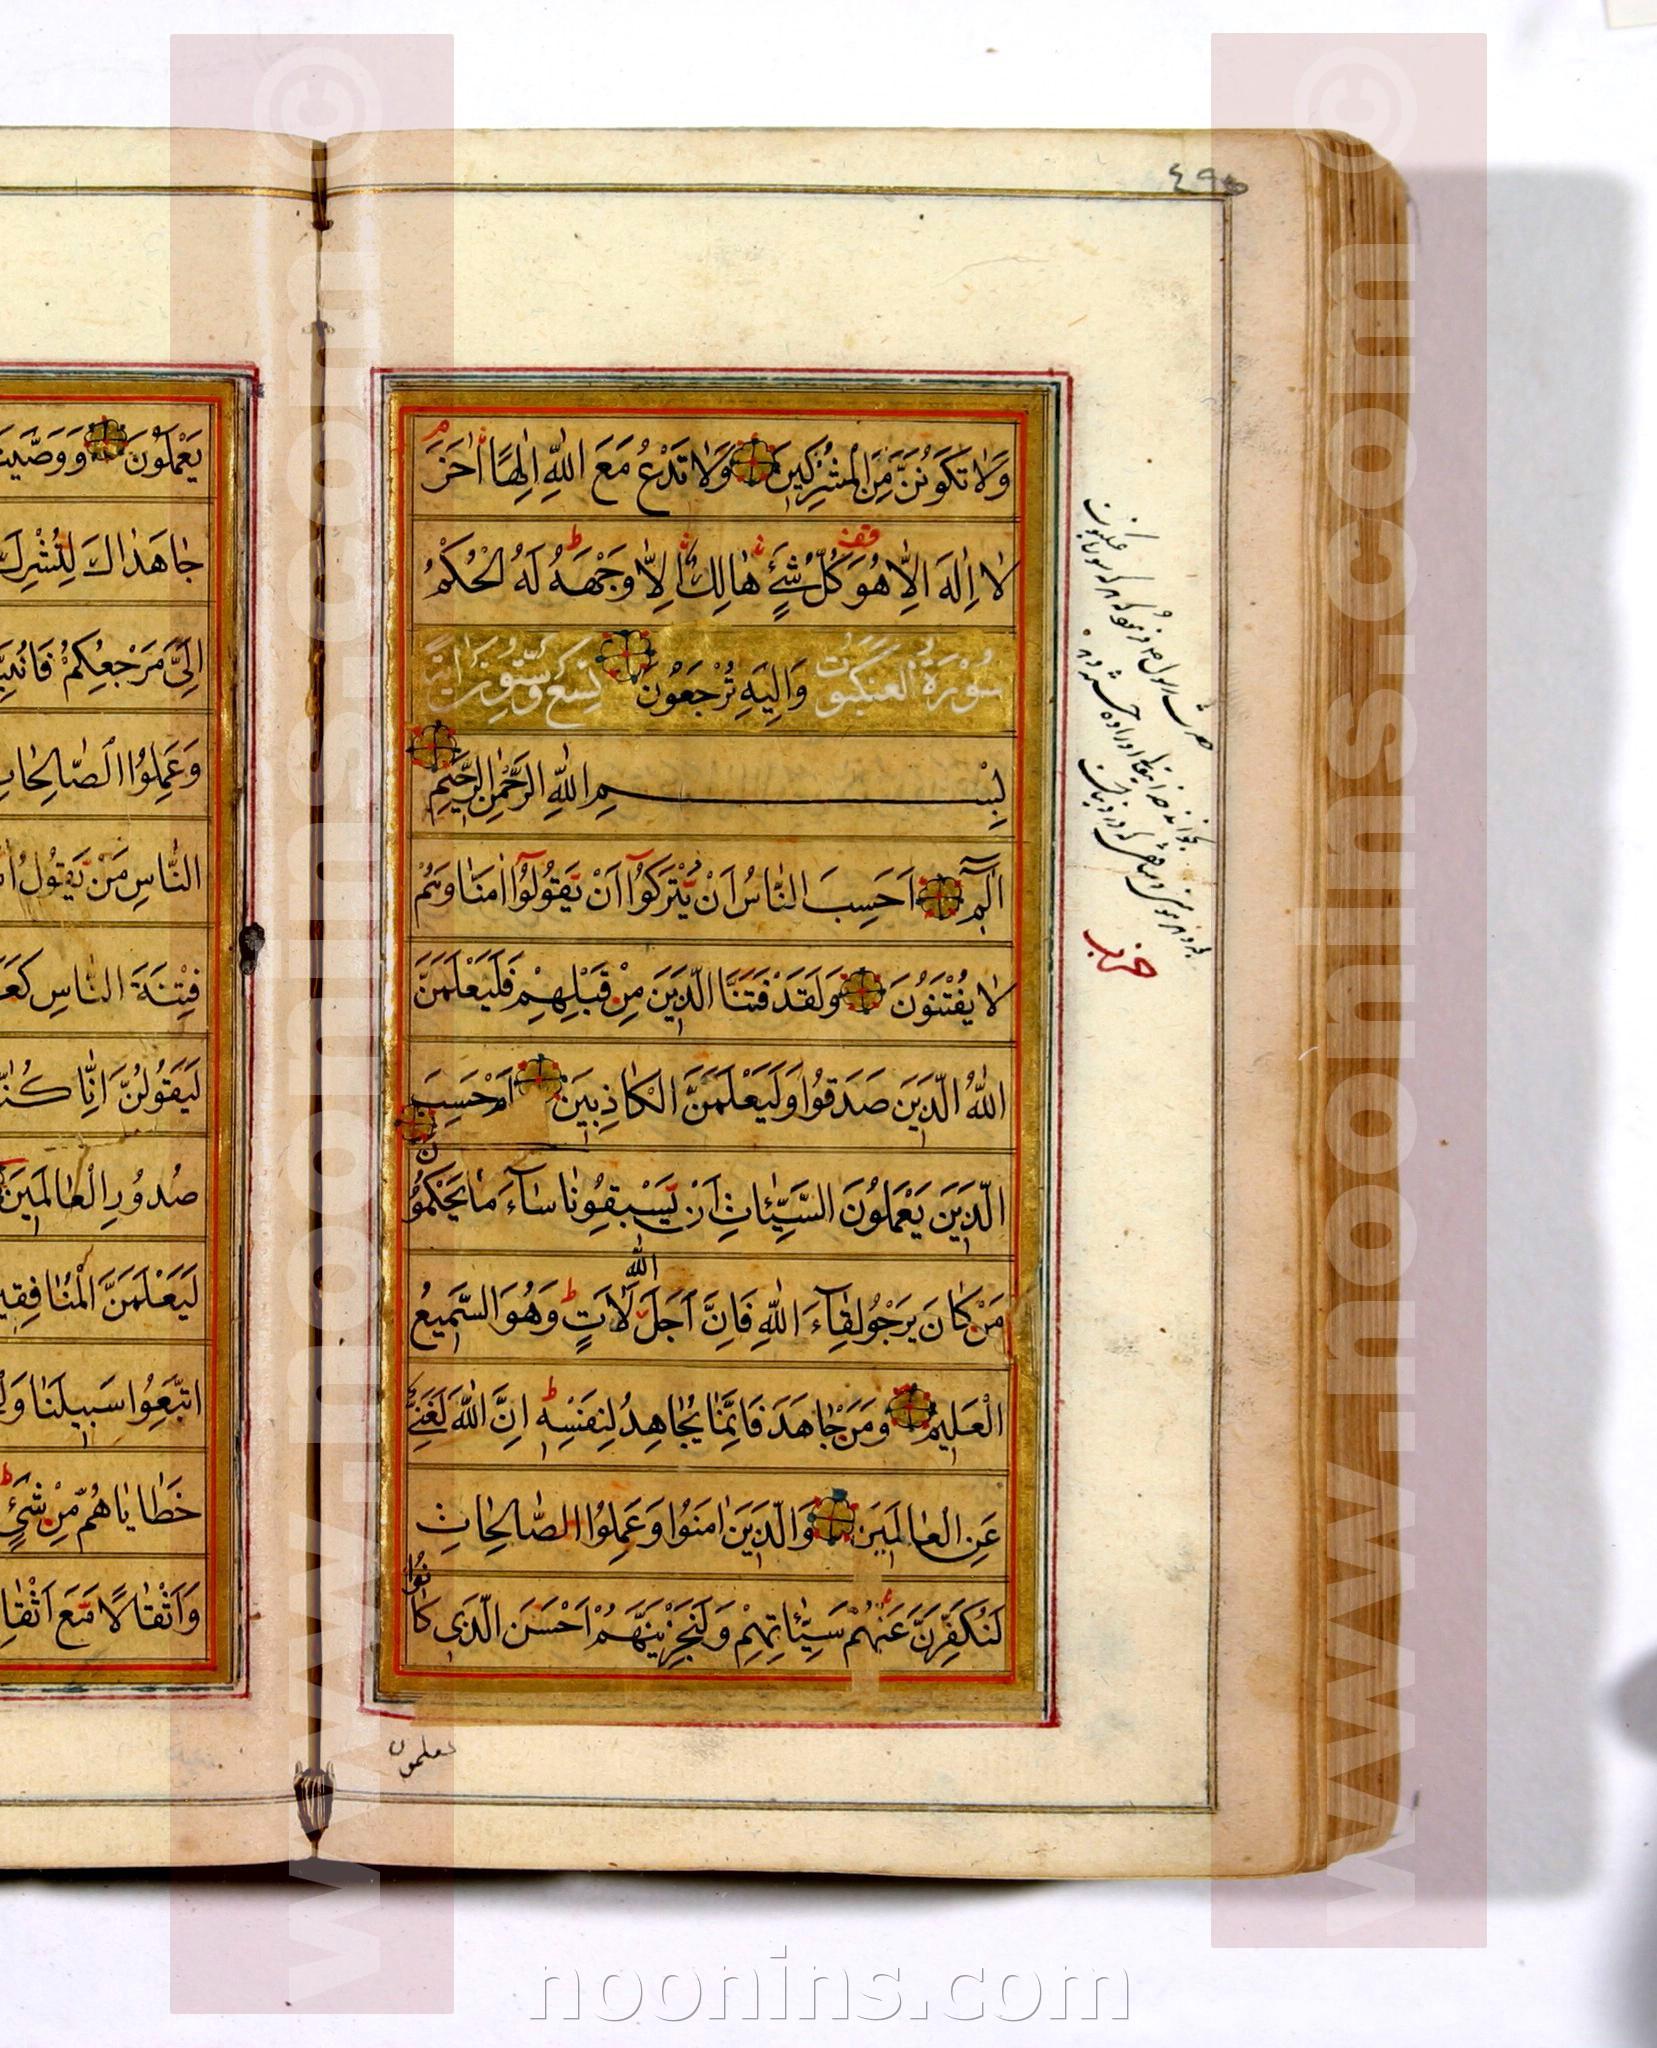 ٤٩٥
وَلَا تَكُونَنَّ مِنَ الْمُشْرِكِينَ وَلَا تَدْعُ مَعَ اللَّهِ إِلٰهًا اٰخَرَ
لَا اِلٰهَ اِلَّا هُوَ كُلُّ شَيْءٍ هَالِكٌ اِلَّا وَجْهَهُ لَهُ الْحُكْمُ
سُورَةُ الْعَنْكَبُوتُ وَاِلَيْهِ تُرْجَعُونَ تِسْعٌ وَسِتُّونَ اٰيَةً
بِسْمِ اللّٰهِ الرَّحْمٰنِ الرَّحِيمِ
الٓمٓ اَحَسِبَ النَّاسُ اَنْ يُتْرَكُوٓا اَنْ يَقُولُوٓا اٰمَنَّا وَهُمْ
لَا يُفْتَنُونَ وَلَقَدْ فَتَنَّا الَّذِينَ مِنْ قَبْلِهِمْ فَلَيَعْلَمَنَّ
اللّٰهُ الَّذِينَ صَدَقُوا وَلَيَعْلَمَنَّ الْكَاذِبِينَ اَمْ حَسِبَ
الَّذِينَ يَعْمَلُونَ السَّيِّئَاتِ اَنْ يَسْبِقُونَا سَآءَ مَا يَحْكُمُونَ
مَنْ كَانَ يَرْجُوا لِقَآءَ اللّٰهِ فَاِنَّ اَجَلَ اللّٰهِ لَاٰتٍ وَهُوَ السَّمِيعُ
الْعَلِيمُ وَمَنْ جَاهَدَ فَاِنَّمَا يُجَاهِدُ لِنَفْسِهِ اِنَّ اللّٰهَ لَغَنِيٌّ
عَنِ الْعَالَمِينَ وَالَّذِينَ اٰمَنُوا وَعَمِلُوا الصَّالِحَاتِ
لَنُكَفِّرَنَّ عَنْهُمْ سَيِّئَاتِهِمْ وَلَنَجْزِيَنَّهُمْ اَحْسَنَ الَّذِي كَانُوا
يعلمون
حزب
يَعْمَلُونَ وَوَصَّيْنَا
جَاهَدَاكَ لِتُشْرِكَ
اِلَيَّ مَرْجِعُكُمْ
وَعَمِلُوا الصَّالِحَاتِ
النَّاسِ مَنْ يَقُولُ
فِتْنَةَ النَّاسِ
لَيَقُولُنَّ اِنَّا كُنَّا
صُدُورِ الْعَالَمِينَ
لَيَعْلَمَنَّ الْمُنَافِقِينَ
اتَّبِعُوا سَبِيلَنَا
خَطَايَاهُمْ مِنْ شَيْءٍ
وَاَثْقَالًا مَعَ
www.noonins.com ©
www.noonins.com ©
noonins.com